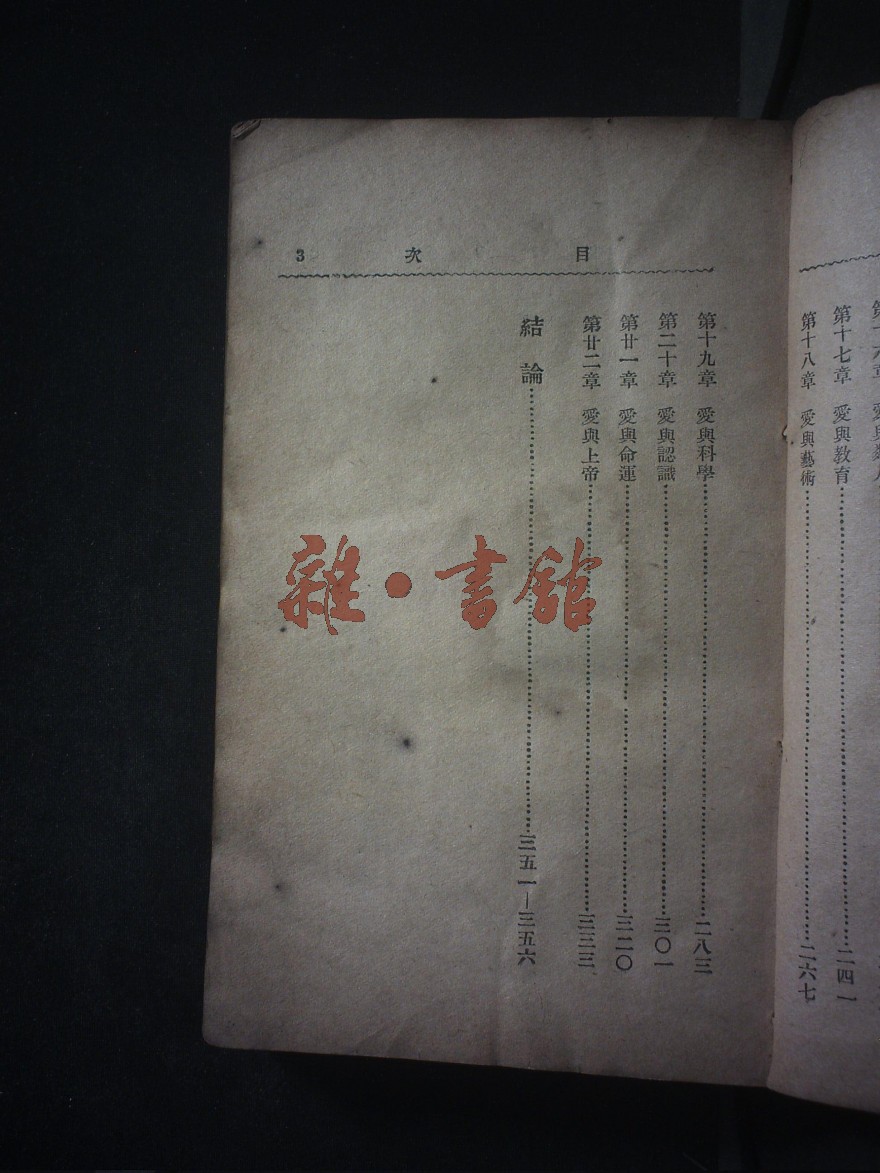 目次 3
第十九章 愛與科學……二八三
第二十章 愛與認識……三〇一
第廿一章 愛與命運……三二〇
第廿二章 愛與上帝……三三三
結論……三五一—三五六
第十七章 愛與教育……二四一
第十八章 愛與藝術……二六七
雜·書館